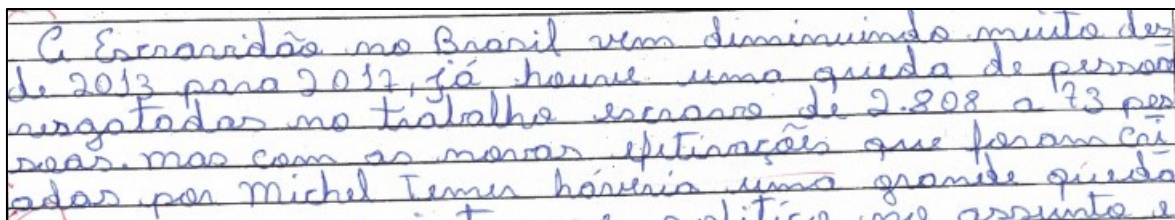 A Escravidão no Brasil vem diminuindo muito des
de 2013 para 2017, já houve uma queda de pessoas
resgatadas no trabalho escravo de 2.808 a 73 pes
soas. mas com as novas efetivações que foram cri
adas por Michel Temer háveria uma grande quéda
política no assunto e